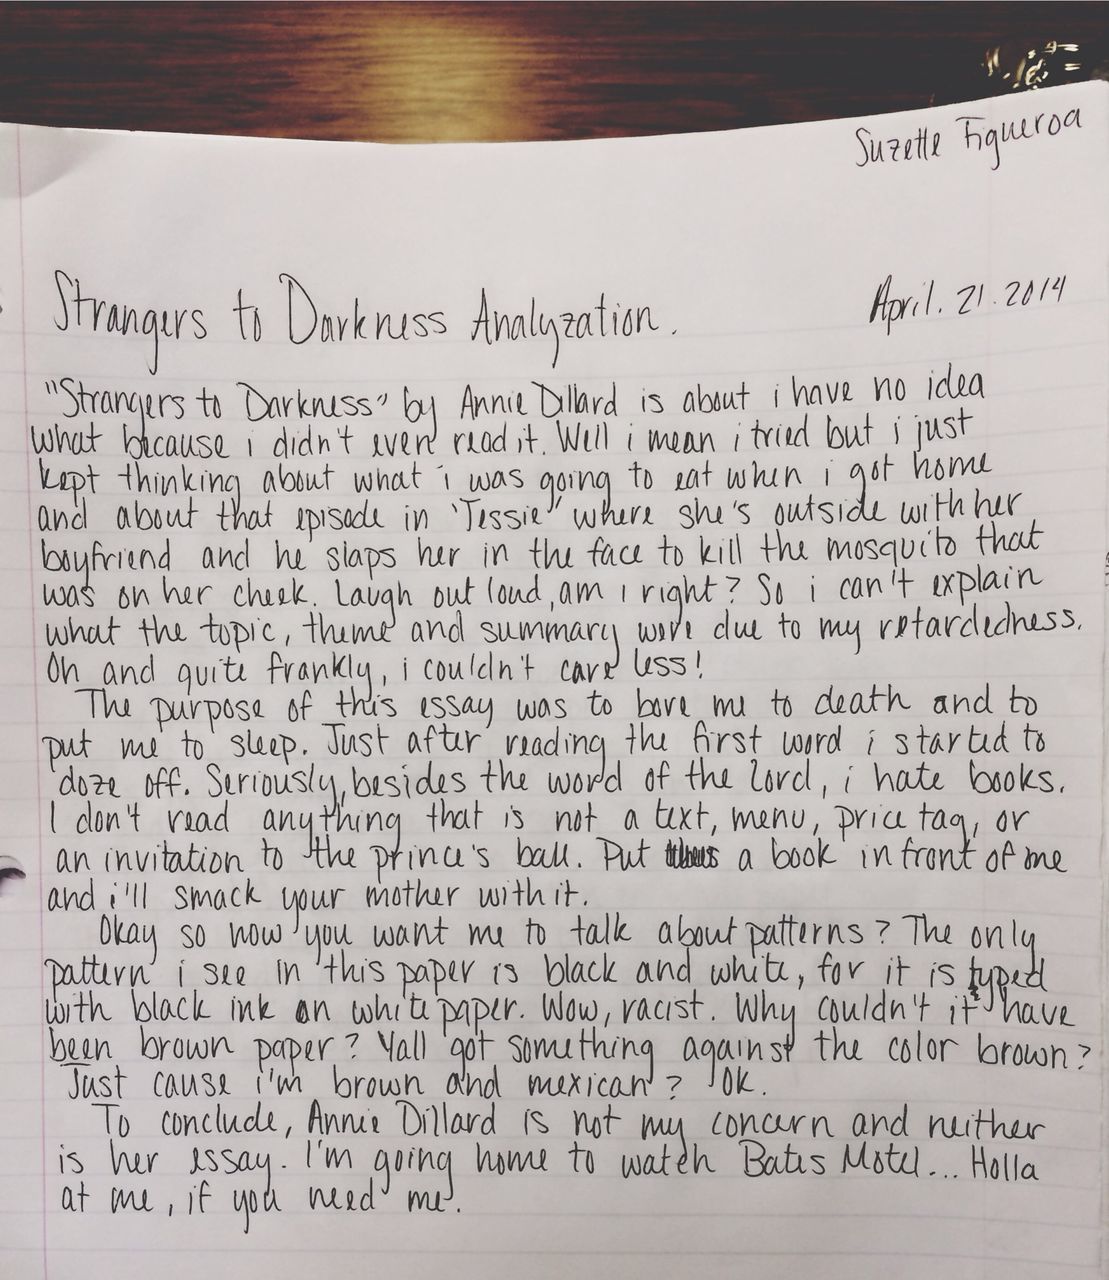 Suzette Figueroa
Strangers to Darkness Analyzation.
April. 21. 2014
"Strangers to Darkness" by Annie Dillard is about i have no idea
what because i didn't even read it. Well i mean i tried but i just
kept thinking about what i was going to eat when i got home
and about that episode in 'Jessie' where she's outside with her
boyfriend and he slaps her in the face to kill the mosquito that
was on her cheek. Laugh out loud, am i right? So i can't explain
what the topic, theme and summary were due to my retardedness.
Oh and quite frankly, i couldn't care less!
The purpose of this essay was to bore me to death and to
put me to sleep. Just after reading the first word i started to
doze off. Seriously, besides the word of the lord, i hate books.
I don't read anything that is not a text, menu, price tag, or
an invitation to the prince's ball. Put a book in front of me
and i'll smack your mother with it.
Okay so now you want me to talk about patterns? The only
pattern i see in this paper is black and white, for it is typed
with black ink on white paper. Wow, racist. Why couldn't it have
been brown paper? Yall got something against the color brown?
Just cause i'm brown and mexican? Ok.
To conclude, Annie Dillard is not my concern and neither
is her essay. I'm going home to watch Bates Motel... Holla
at me, if you need me.